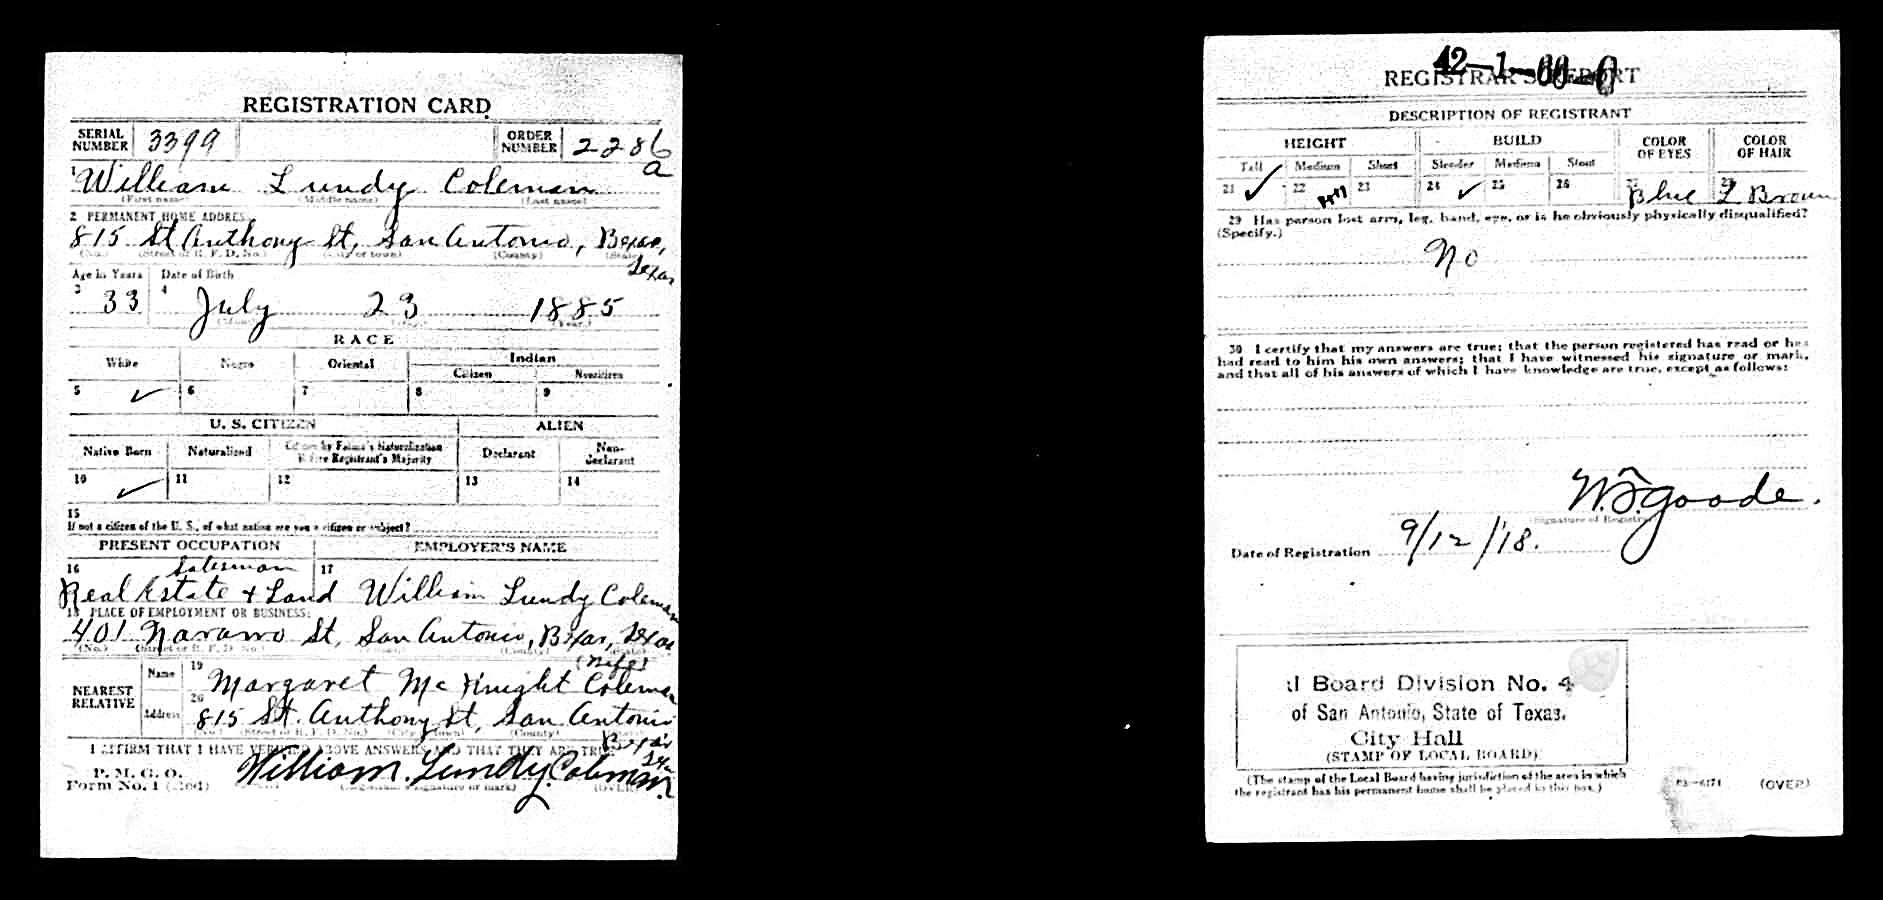 REGISTRATION CARD
SERIAL NUMBER 3399 ORDER NUMBER 2286
a
1 William Lundy Coleman
(First name) (Middle name) (Last name)
2 PERMANENT HOME ADDRESS:
815 St Anthony St, San Antonio, Bexar,
(No.) (Street or R. F. D. No.) (City or town) (County) (State)
Texas
Age in Years Date of Birth
3 33 4 July 23 1885
(Month) (Day) (Year)
RACE
White Negro Oriental Indian
Citizen Noncitizen
5 ✓ 6 7 8 9
U. S. CITIZEN ALIEN
Native Born Naturalized Citizen by Father's Naturalization Before Registrant's Majority Declarant Non-declarant
10 ✓ 11 12 13 14
15
If not a citizen of the U. S., of what nation are you a citizen or subject?
PRESENT OCCUPATION EMPLOYER'S NAME
16 Salesman 17
Real Estate + Land William Lundy Coleman
18 PLACE OF EMPLOYMENT OR BUSINESS:
401 Navarro St, San Antonio, Bexar, Texas
(No.) (Street or R. F. D. No.) (County) (State)
(Wife)
NEAREST RELATIVE Name 19 Margaret McKnight Coleman
Address 20 815 St. Anthony St, San Antonio
(No.) (Street or R. F. D. No.) (City or town) (County)
Bexar
Tex
I AFFIRM THAT I HAVE VERIFIED ABOVE ANSWERS AND THAT THEY ARE TRUE
P. M. G. O.
Form No. 1 (Red) William Lundy Coleman
(Registrant's signature or mark) (OVER)
42-1-60-C
REGISTRAR'S REPORT
DESCRIPTION OF REGISTRANT
HEIGHT BUILD COLOR OF EYES COLOR OF HAIR
Tall Medium Short Slender Medium Stout
21 ✓ 22 23 24 ✓ 25 26 27 Blue 28 L Brown
29 Has person lost arm, leg, hand, eye, or is he obviously physically disqualified?
(Specify.)
No
30 I certify that my answers are true; that the person registered has read or has
had read to him his own answers; that I have witnessed his signature or mark,
and that all of his answers of which I have knowledge are true, except as follows:
W.T. Goode.
(Signature of Registrar)
Date of Registration 9/12/18.
l Board Division No. 4
of San Antonio, State of Texas.
City Hall
(STAMP OF LOCAL BOARD)
(The stamp of the Local Board having jurisdiction of the area in which
the registrant has his permanent home shall be placed in this box.)
03—6171 (OVER)